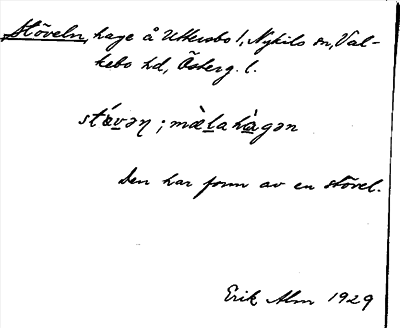 Stöveln, hage å Uttersbo l, Nykils sn, Val-
kebo hd, Österg. l.
stǿvəη ; mæ̀lahàgən
Den har form av en stövel.
Erik Alm 1929